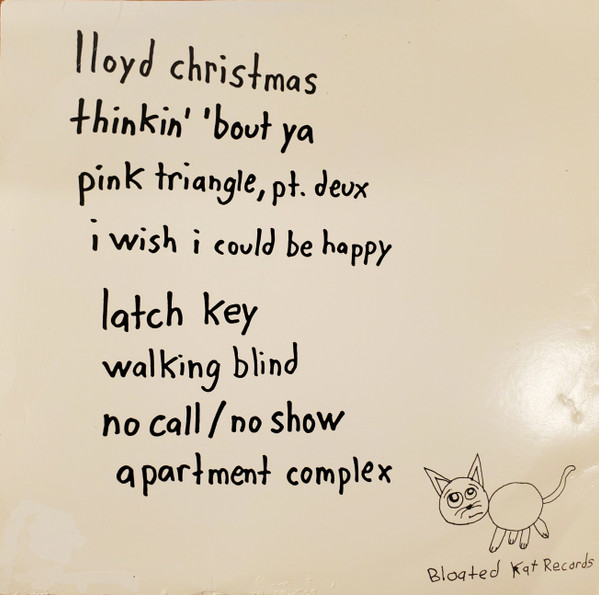 lloyd christmas
thinkin' 'bout ya
pink triangle, pt. deux
i wish i could be happy
latch key
walking blind
no call/no show
apartment complex
Bloated Kat Records